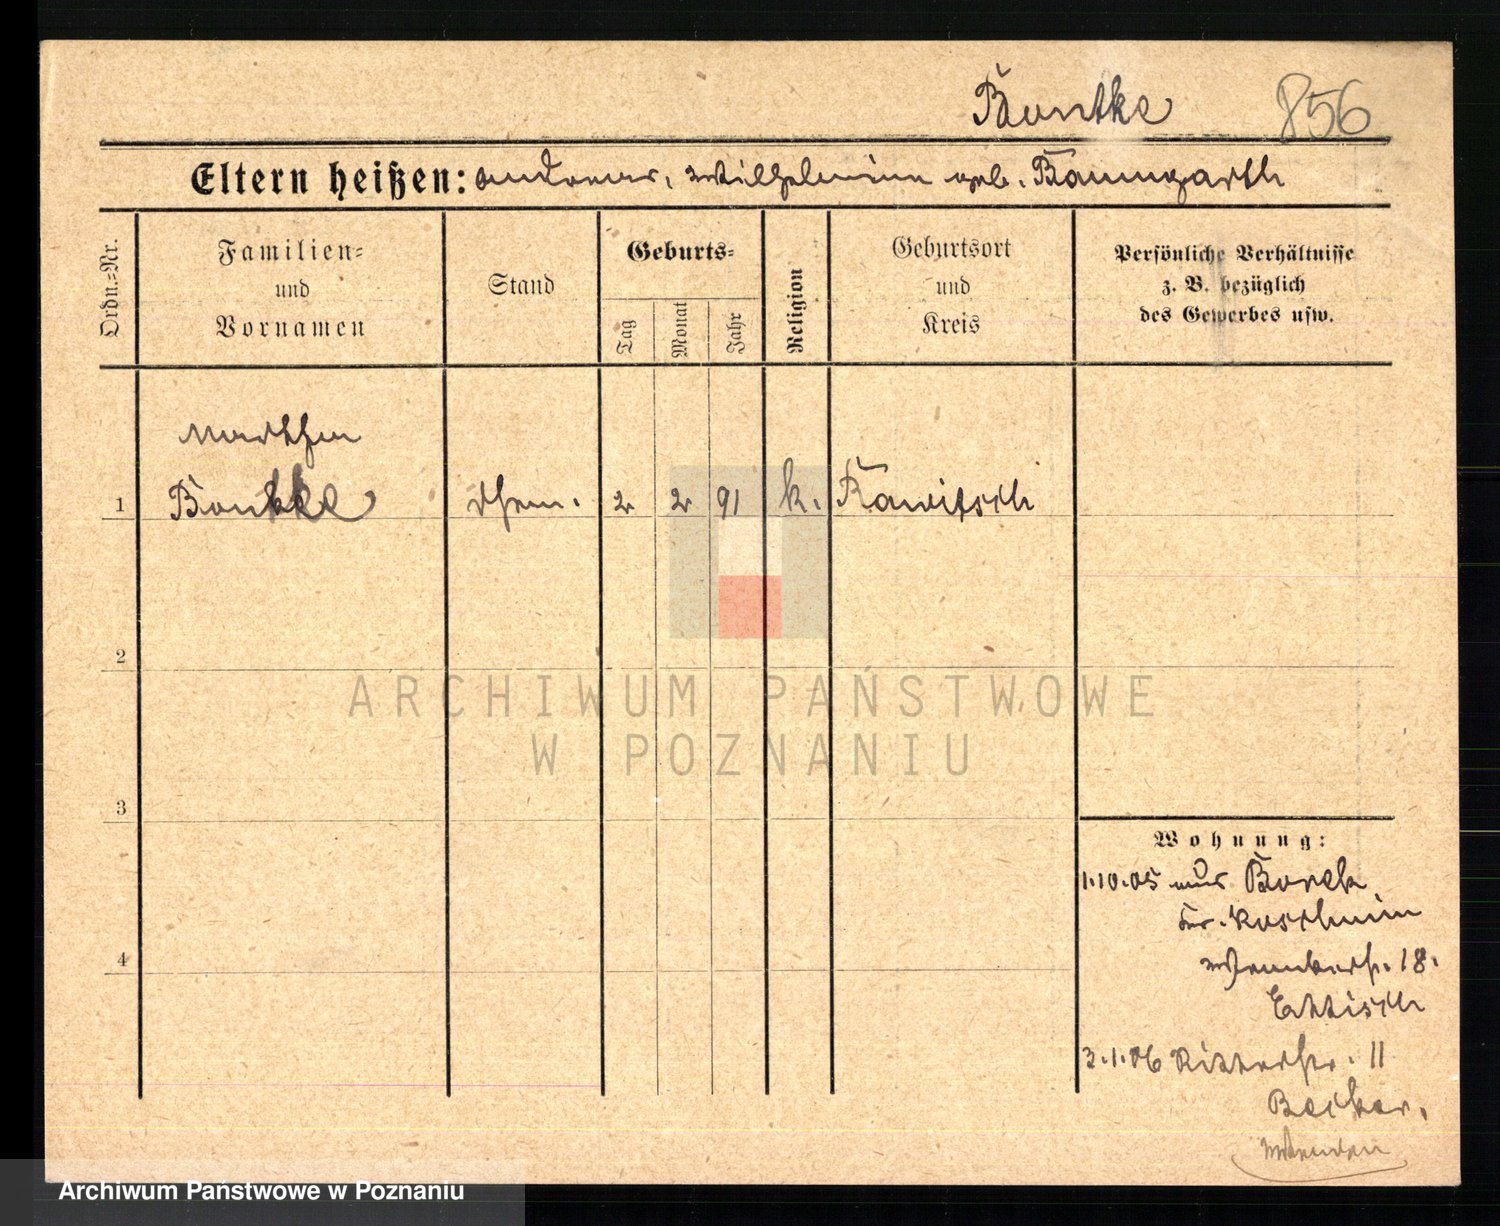 Bontke 856
Eltern heißen: Andreas, Wilhelmine geb. Baumgarth
Ordn.-Nr.
Familien- und Vornamen
Stand
Geburts-
Tag
Monat
Jahr
Religion
Geburtsort und Kreis
Persönliche Verhältnisse
z. B. bezüglich
des Gewerbes usw.
Martha
1 Bontke 2 2 91 k. Rawitsch
2
ARCHIWUM PAŃSTWOWE
W POZNANIU
3
4
Wohnung:
1.10.05 aus Borek
Kr. Koschmin
18.
3.1.06 Ritterstr. 11
Becker.
Archiwum Państwowe w Poznaniu